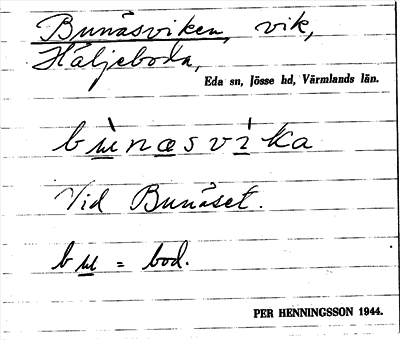 Bunäsviken, vik,
Häljeboda,
Eda sn, Jösse hd, Värmlands län.
bùnæsvìka
Vid Bunäset.
bu = bod.
PER HENNINGSSON 1944.